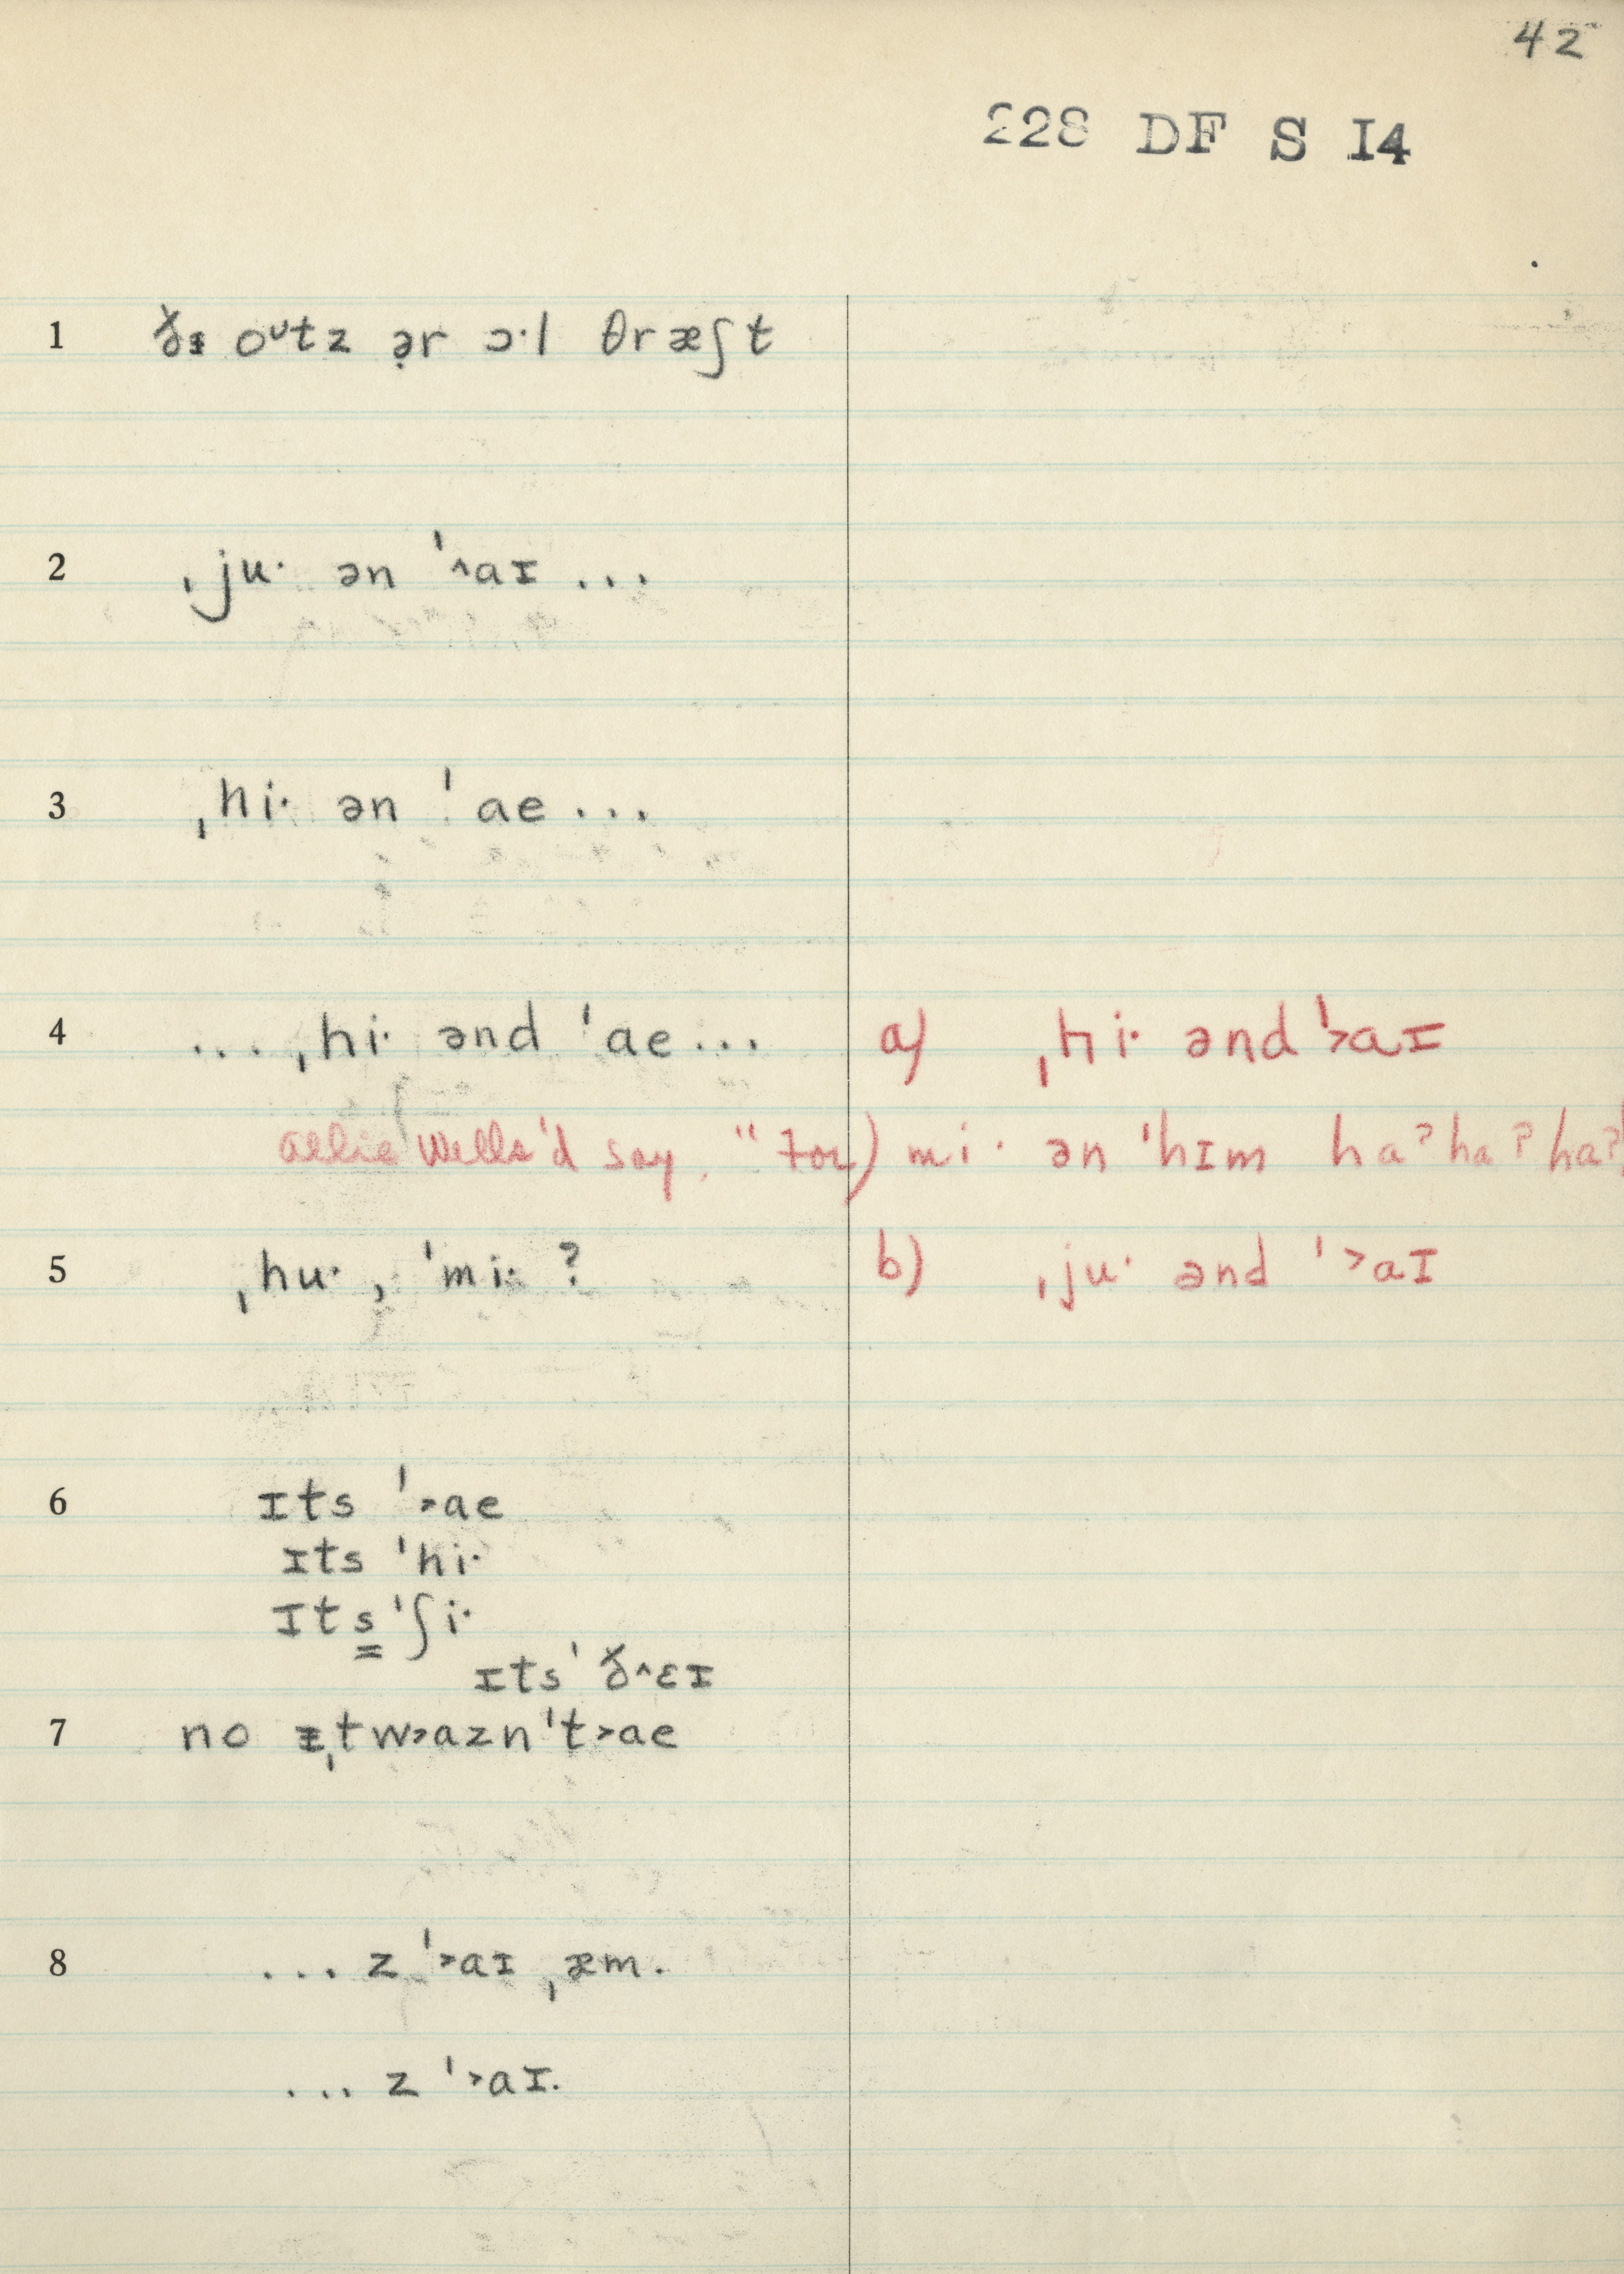 42
228 DF S I4
1 ðɪ oᶷtz ə̣r ɔ·l θræʃt
2 ˌju· ən ˈ˄aɪ ...
3 ˌhi· ən ˈae ...
4 ... ˌhi· ənd ˈae ... a) ˌhi· ənd ˈ˃aɪ
Allie Wells'd say, "For) mi· ən ˈhɪm haˀ haˀ haˀ
5 ˌhu·, ˈmi· ? b) ˌju· ənd ˈ˃aɪ
6 ɪts ˈ˃ae
ɪts ˈhi·
ɪts̳ ˈʃi·
ɪts ˈð˄ɛɪ
7 no ɪˌtw˃aznˈt˃ae
8 ... z ˈ˃aɪ ˌæm.
... z ˈ˃aɪ.